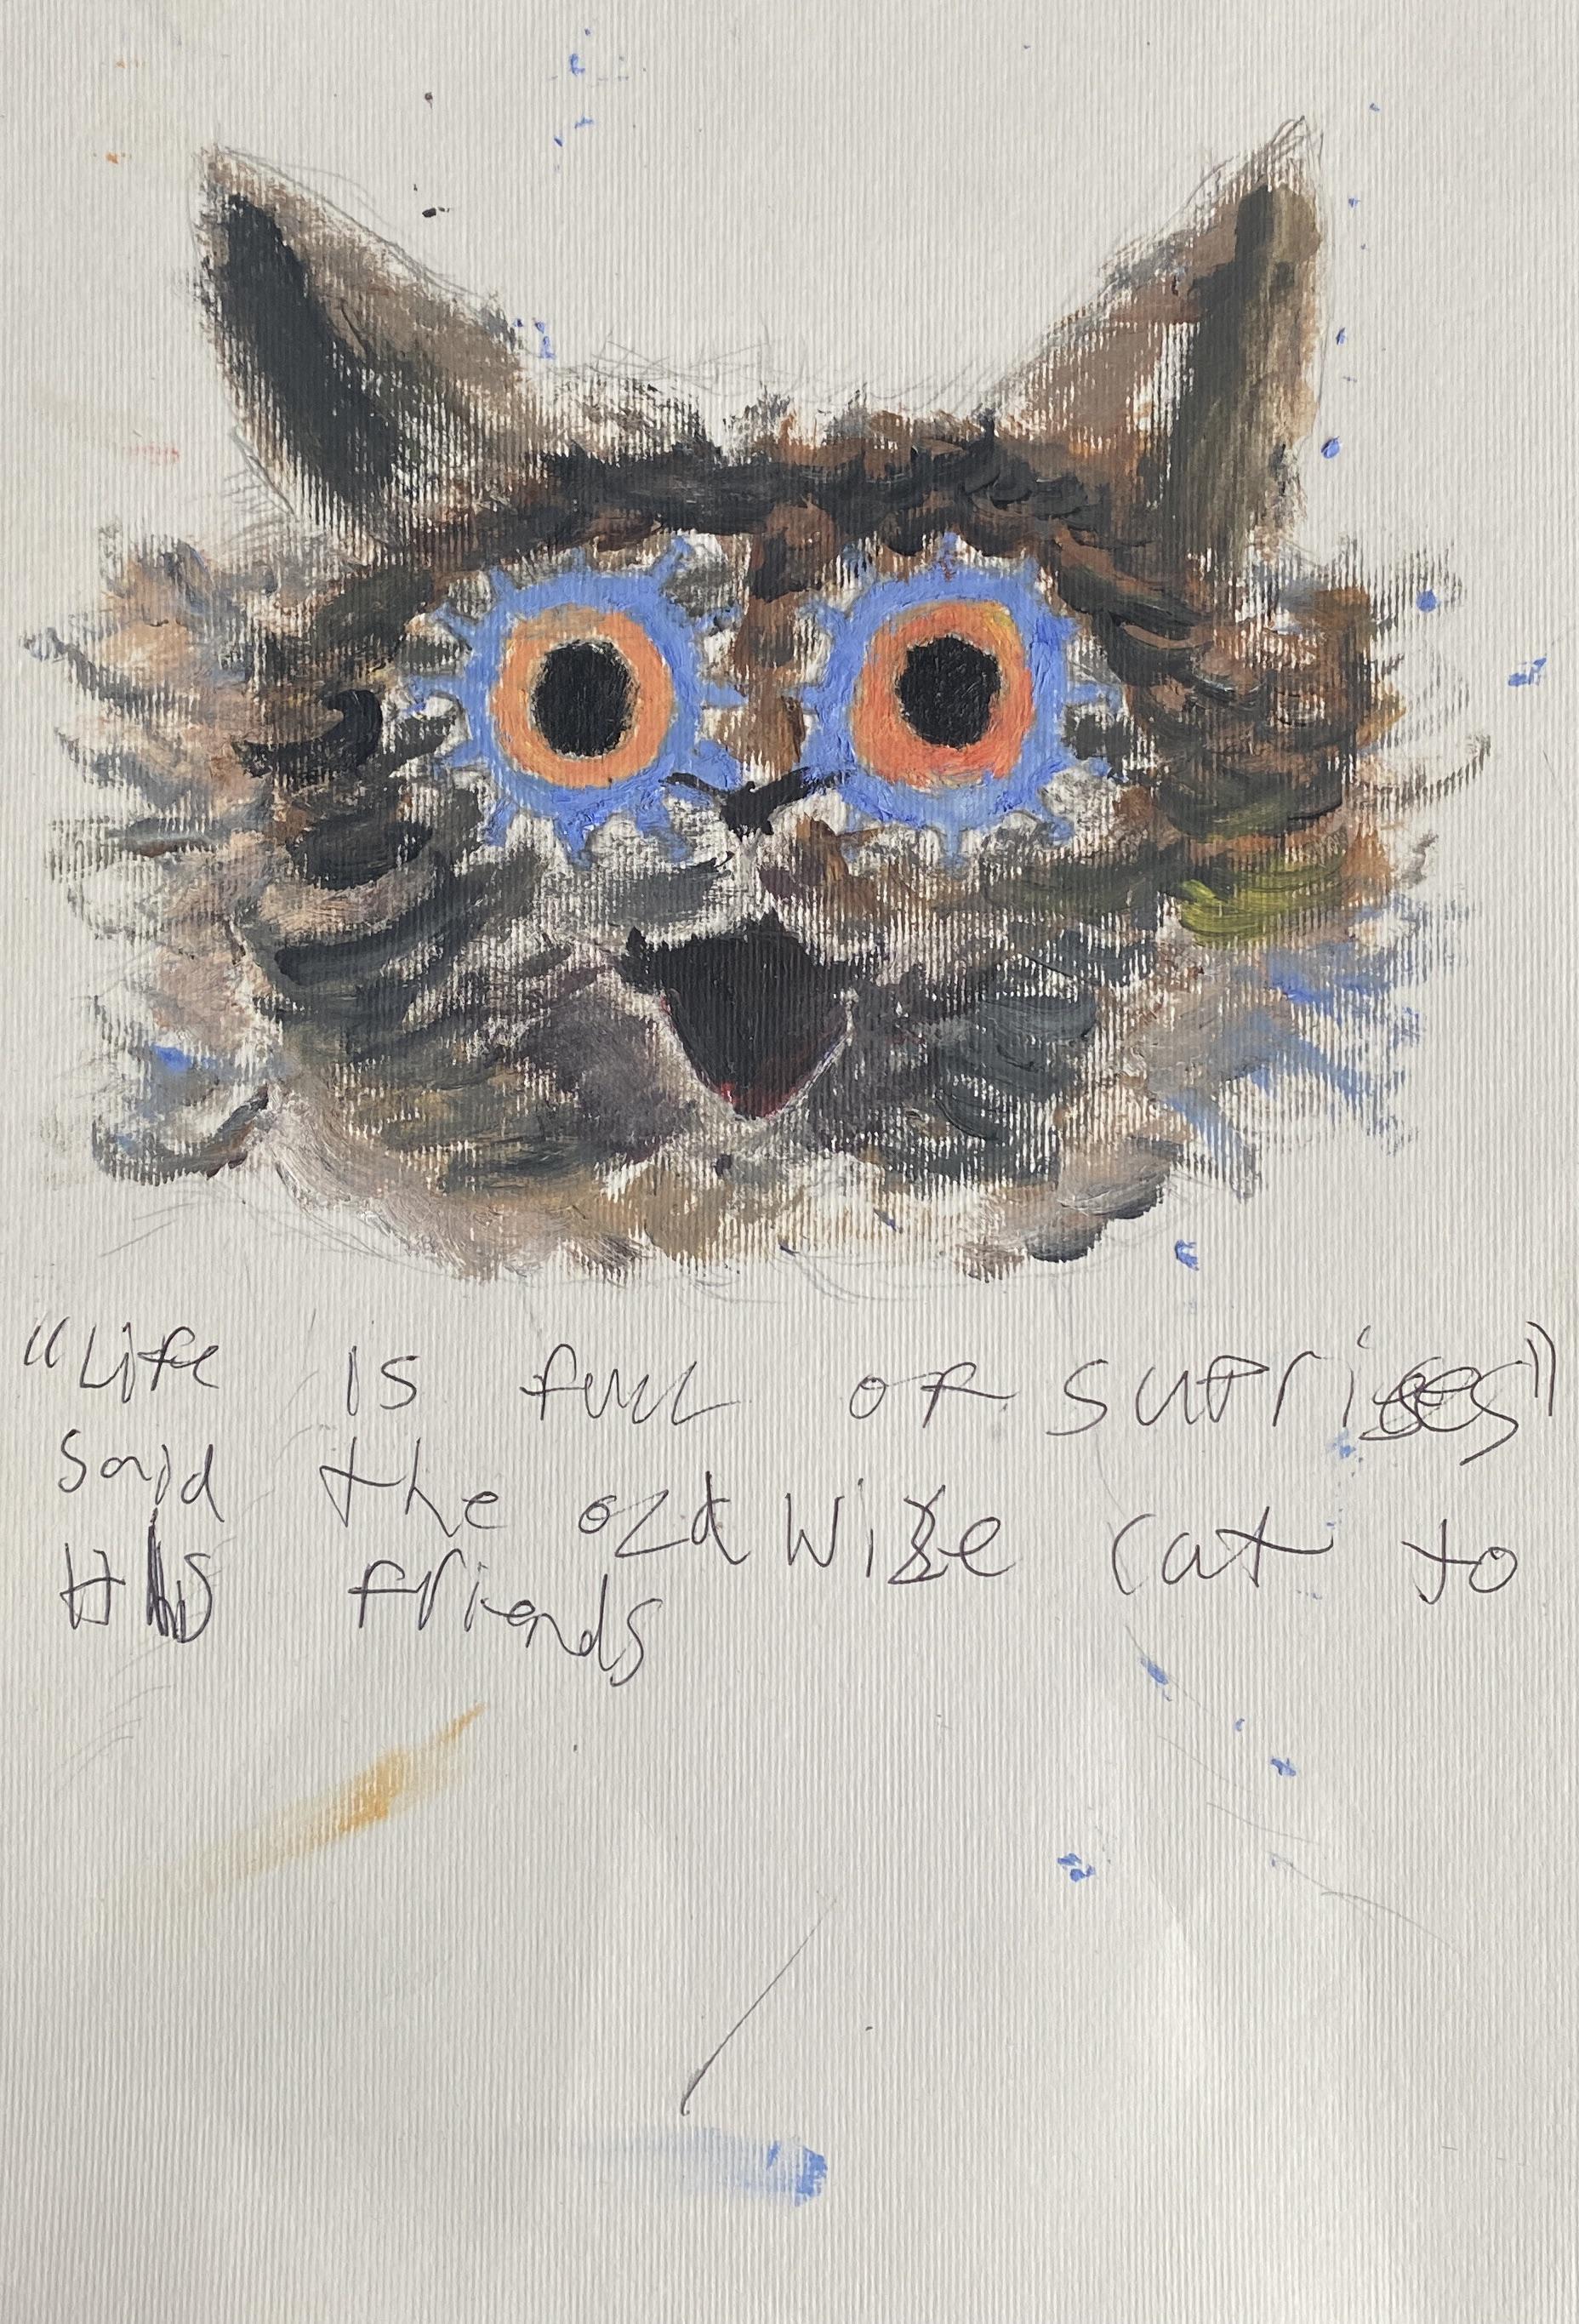 "Life is full of suprises"
said the old wise cat to
his friends